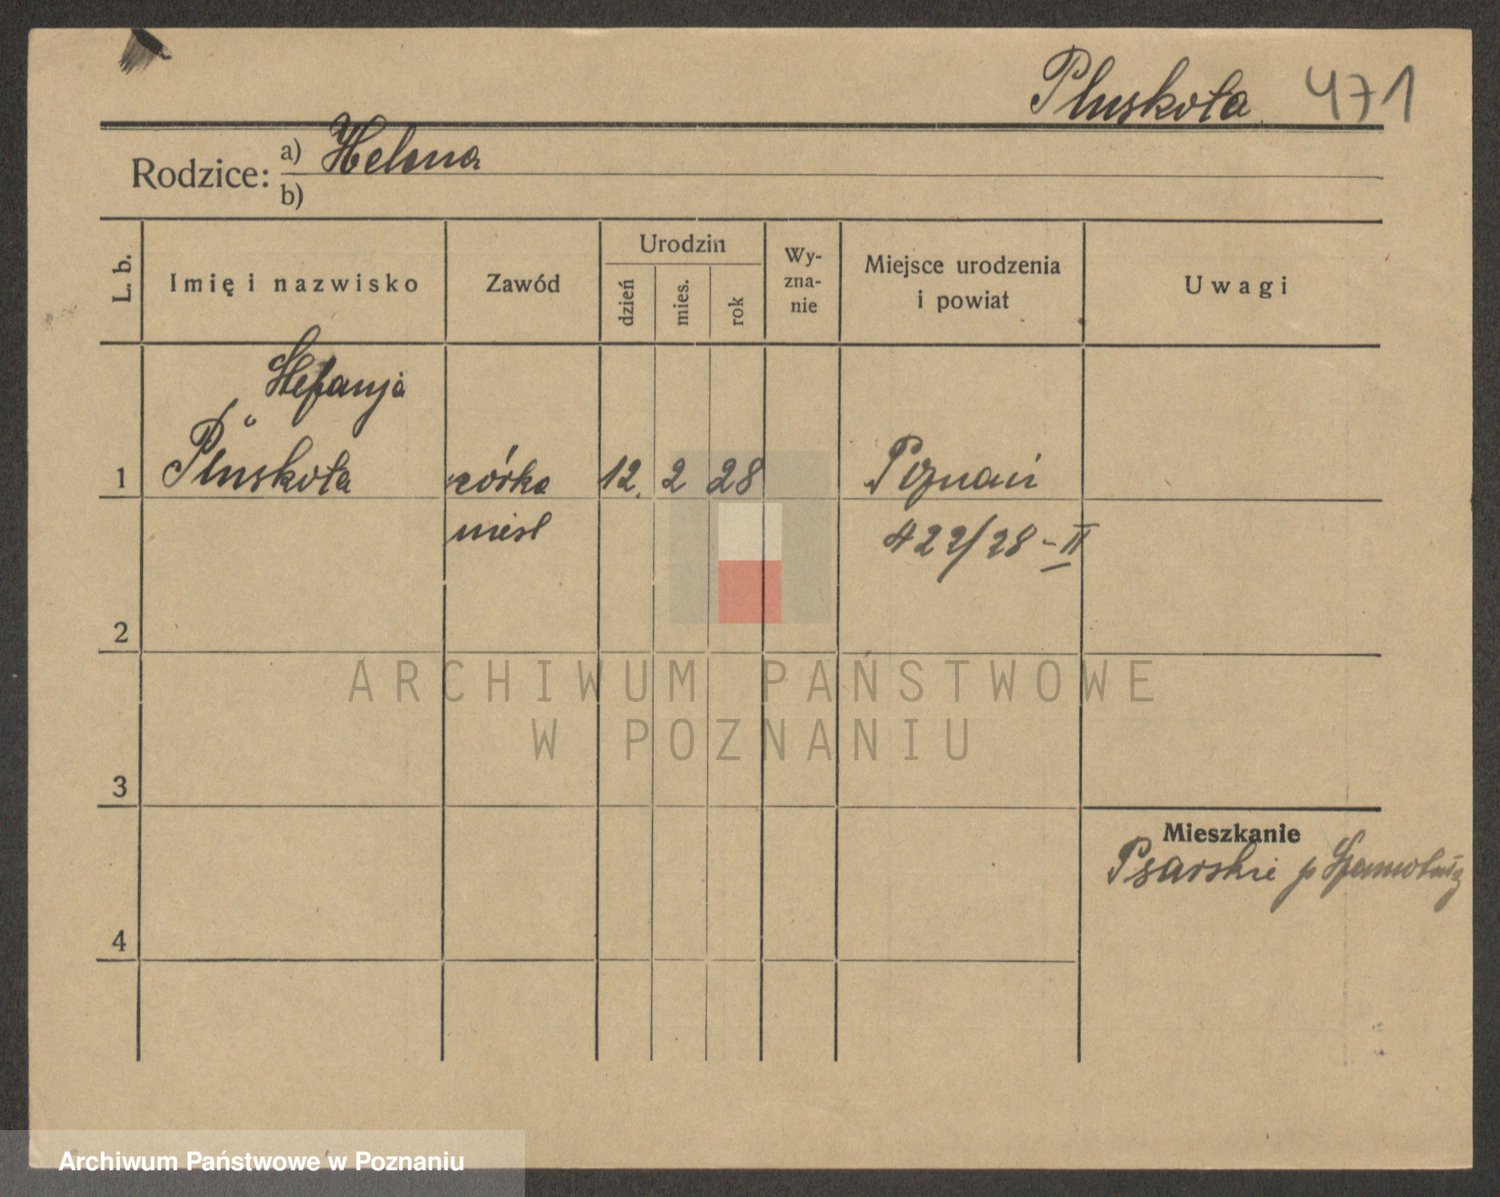 Pluskota 471
Rodzice: a) Helena
b)
L. b. Imię i nazwisko Zawód Urodzin dzień mies. rok Wy-zna-nie Miejsce urodzenia i powiat Uwagi
Stefanja
1 Pluskota córka 12. 2 28 Poznań
nieśl 422/28-II
2
ARCHIWUM PAŃSTWOWE
W POZNANIU
3
Mieszkanie
Psarskie p
4
Archiwum Państwowe w Poznaniu